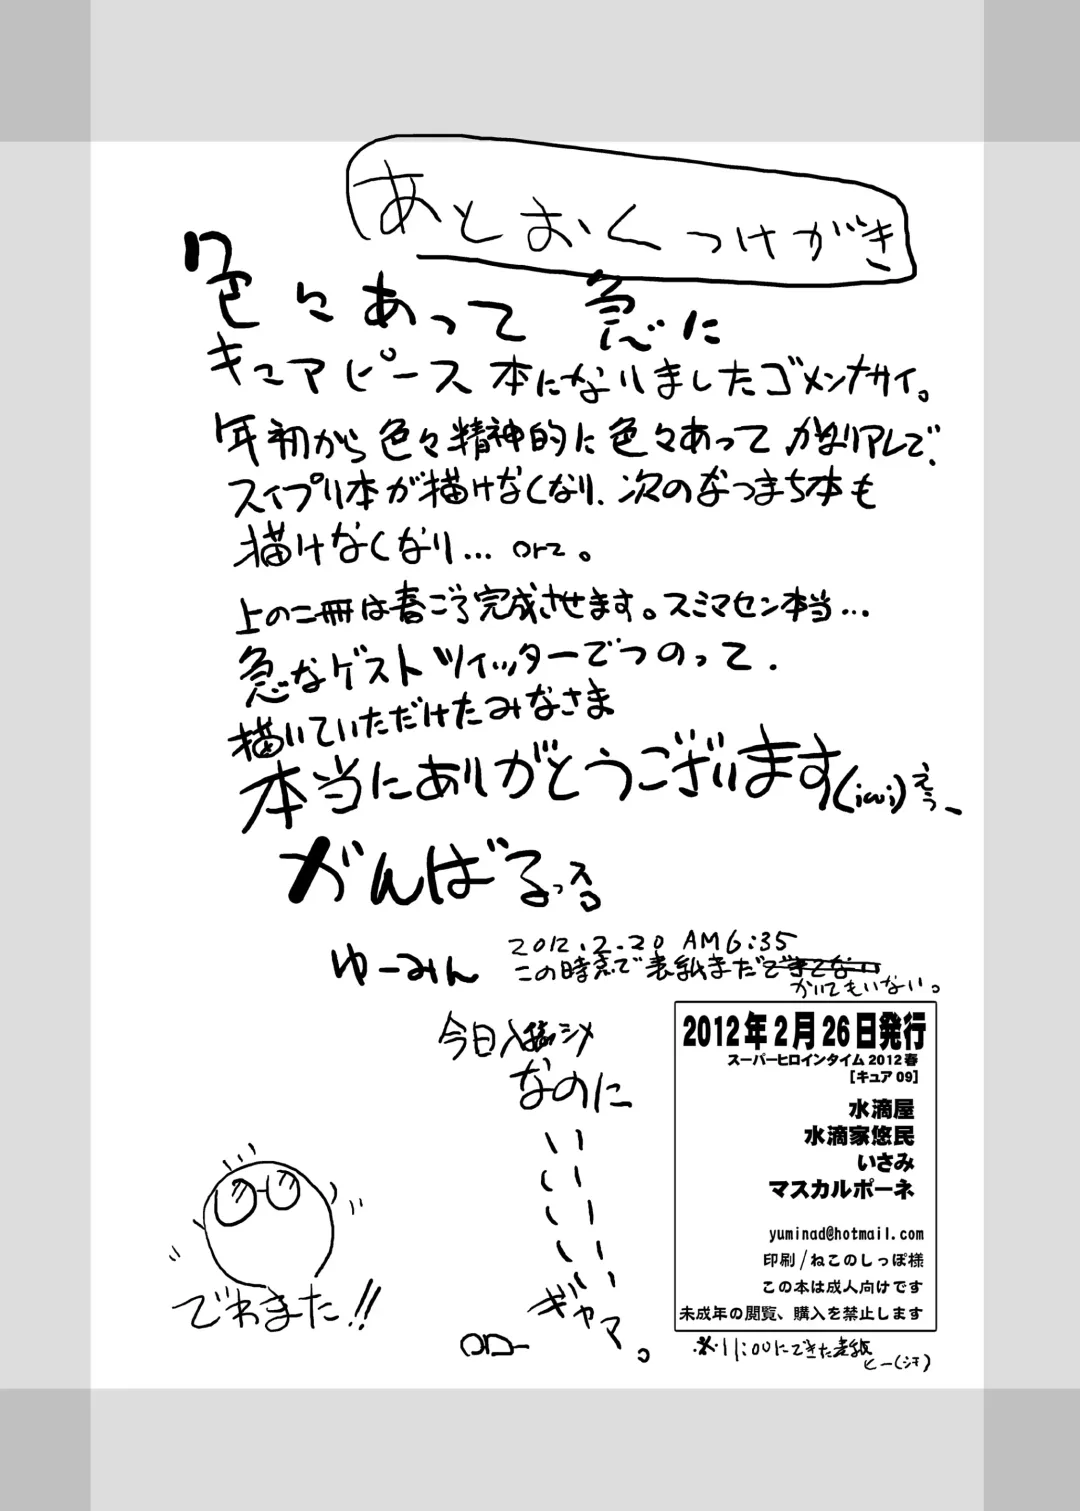 あとおくつけがき
色々あって 急に
キュアピース本になりましたゴメンナサイ。
年初から色々精神的に色々あって かなりアレで、
スイプリ本が描けなくなり、次のなつまち本も
描けなくなり… orz。
上の二冊は春ごろ完成させます。スミマセン本当…
急なゲスト ツイッターでつのって、
描いていただけたみなさま
本当にありがとうございます(;ω;)えぅ、
がんばるっスロ
ゆーみん
2012.2.20 AM6:35
この時点で表紙まだできてない
かいてもいない。
今日入稿シメ
なのに
いいいいいいいいいい
ギャマ。
でわまた!!
2012年2月26日発行
スーパーヒロインタイム2012春
[キュア09]
水滴屋
水滴家悠民
いさみ
マスカルポーネ
yuminad@hotmail.com
印刷/ねこのしっぽ様
この本は成人向けです
未成年の閲覧、購入を禁止します
※11:00にできた表紙
ヒー(汗)